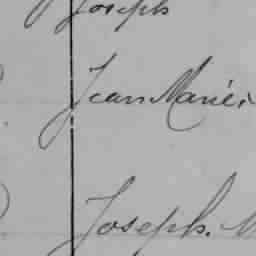 Joseph
Jean Marie
Joseph.